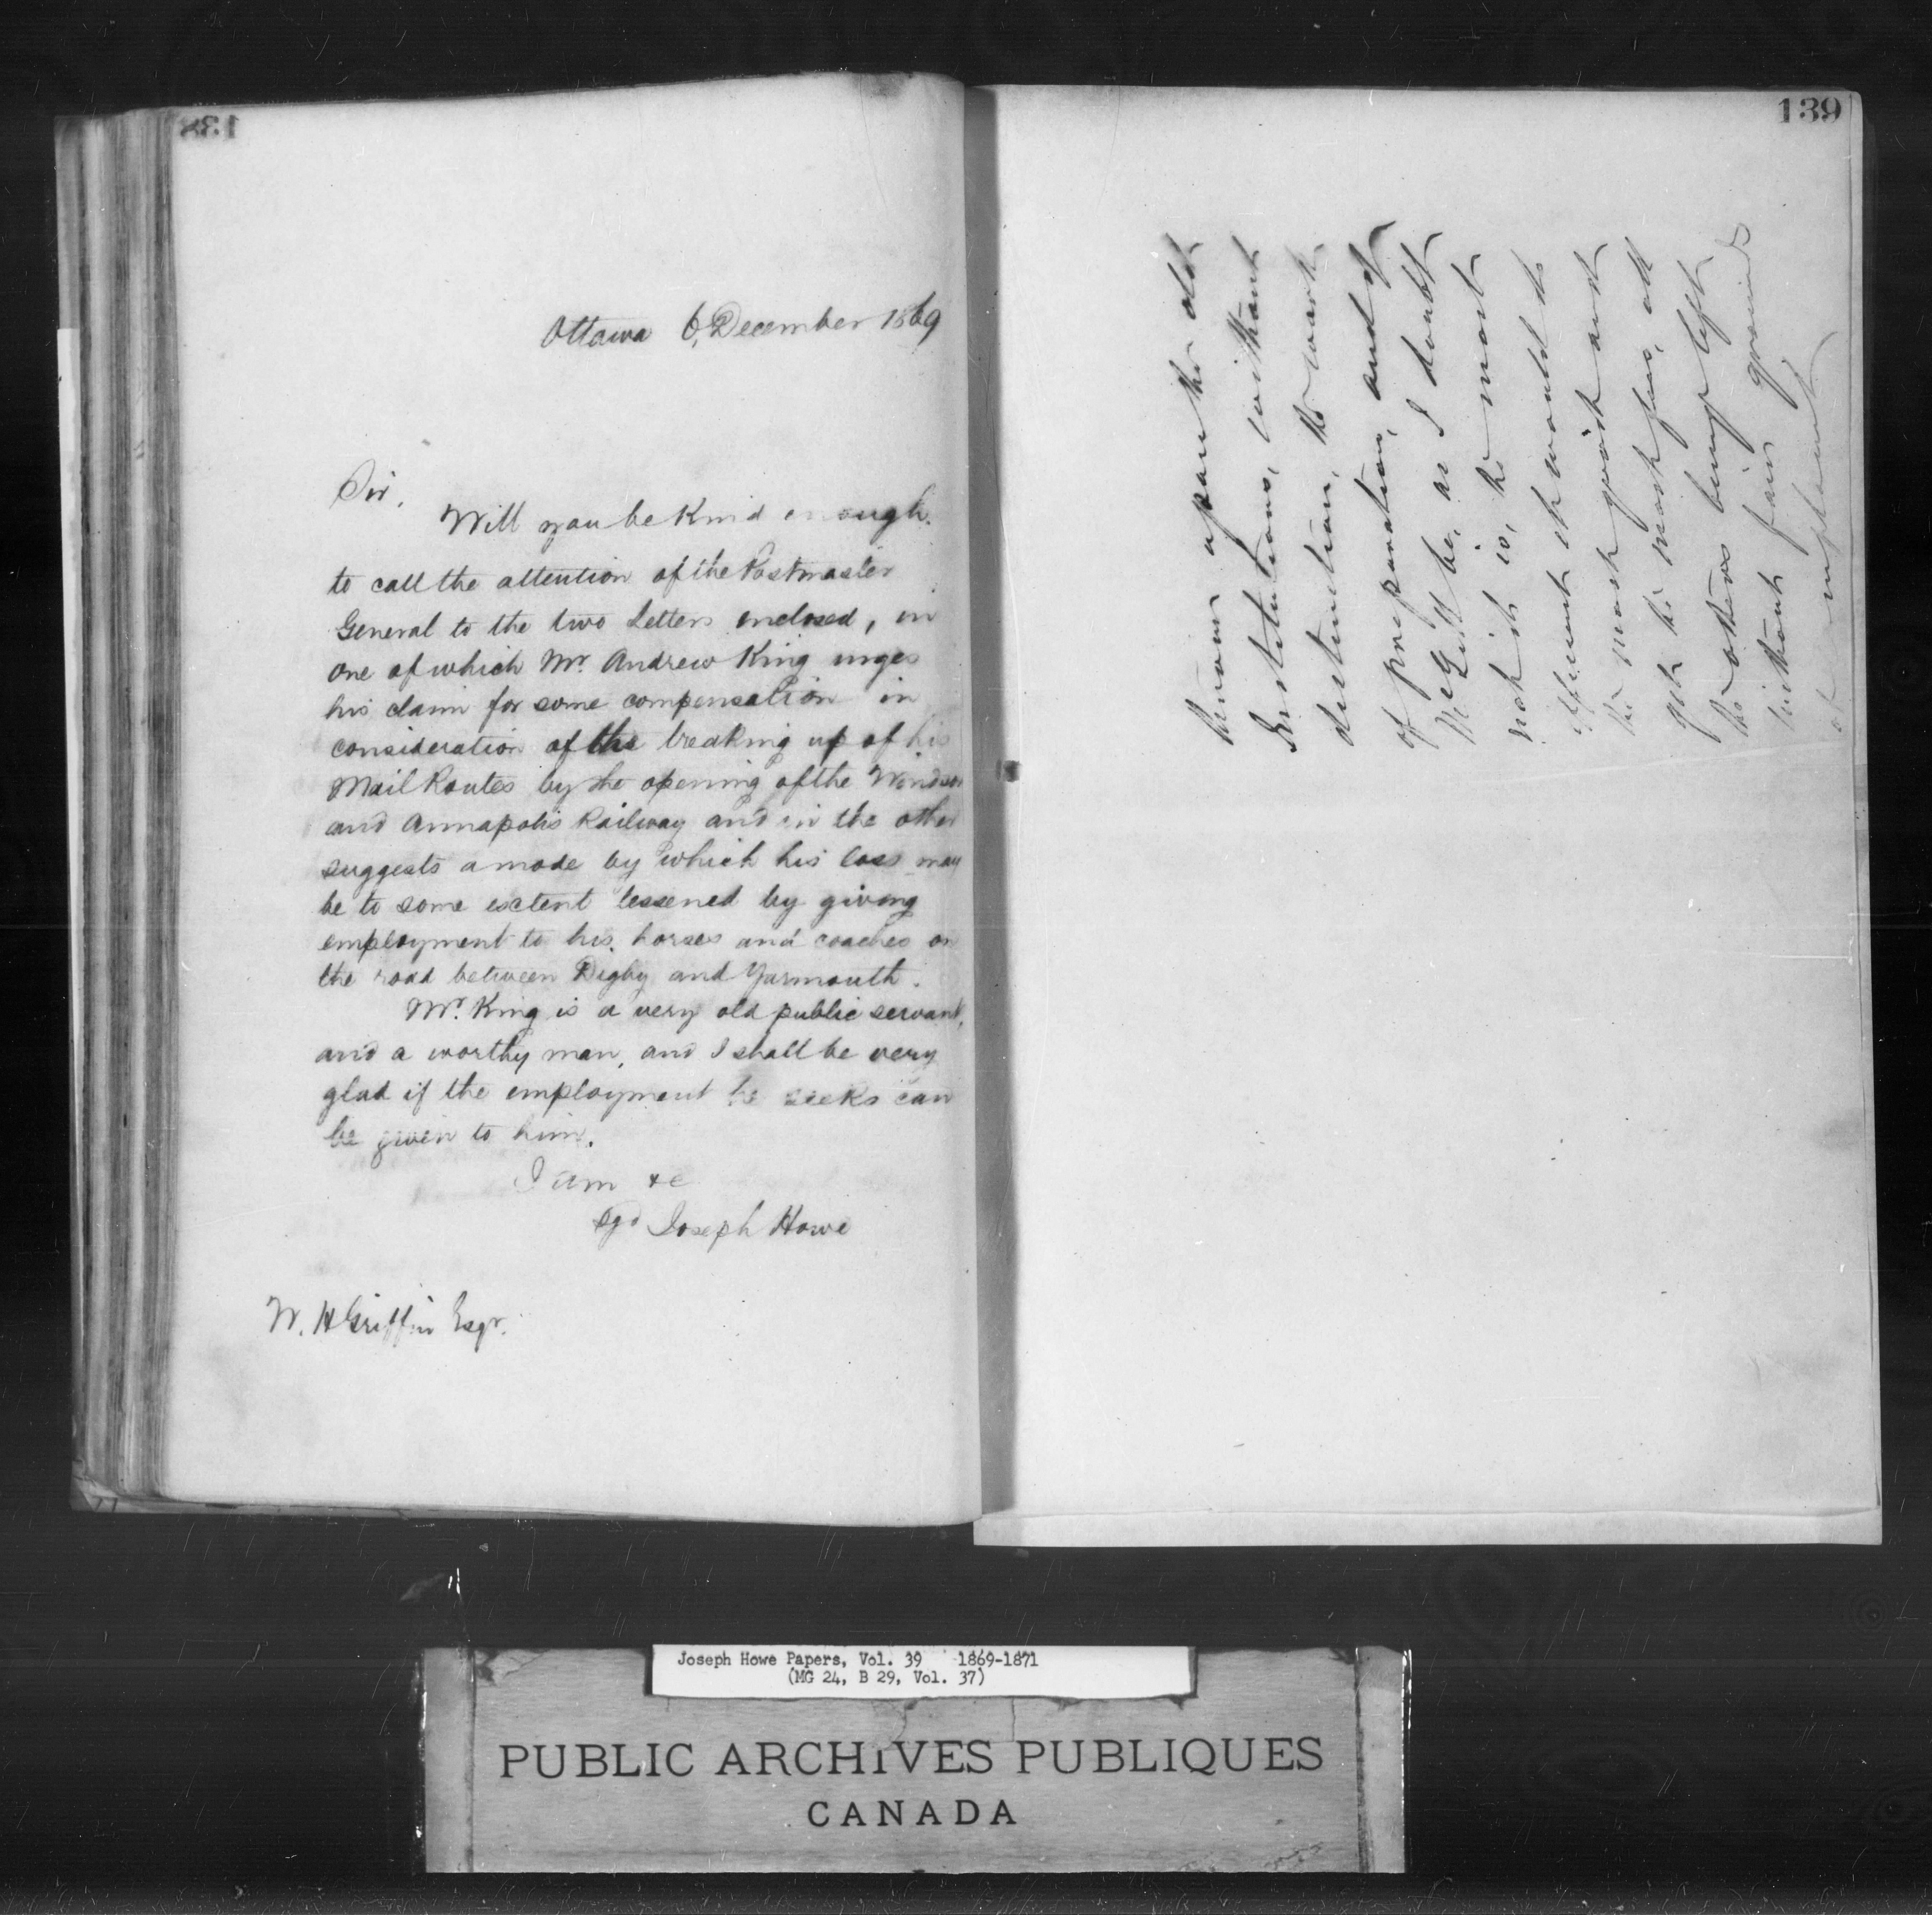 138
Ottawa 6, December 1869
Sir,
Will you be Kind enough
to call the attention of the Postmaster
General to the two Letters enclosed, in
one of which Mr. Andrew King urges
his claim for some compensation in
consideration of the breaking up of his
Mail Routes by the opening of the Windsor
and Annapolis Railway and in the other
suggests a mode by which his loss may
be to some extent lessened by giving
employment to his horses and coaches on
the road between Digby and Yarmouth.
Mr. King is a very old public servant,
and a worthy man, and I shall be very
glad if the employment he seeks can
be given to him.
I am &c
Sgd Joseph Howe
W. H Griffin Esqr.
139
upon the old
Institutions, without
distinction, the work
of preparation, and if
McGill be, as I doubt
not it is, the most
efficient it would do
the most good and
get the most fees, all
the others being left
without fair grounds
of complaint
Joseph Howe Papers, Vol. 39 1869-1871
(MG 24, B 29, Vol. 37)
PUBLIC ARCHIVES PUBLIQUES
CANADA